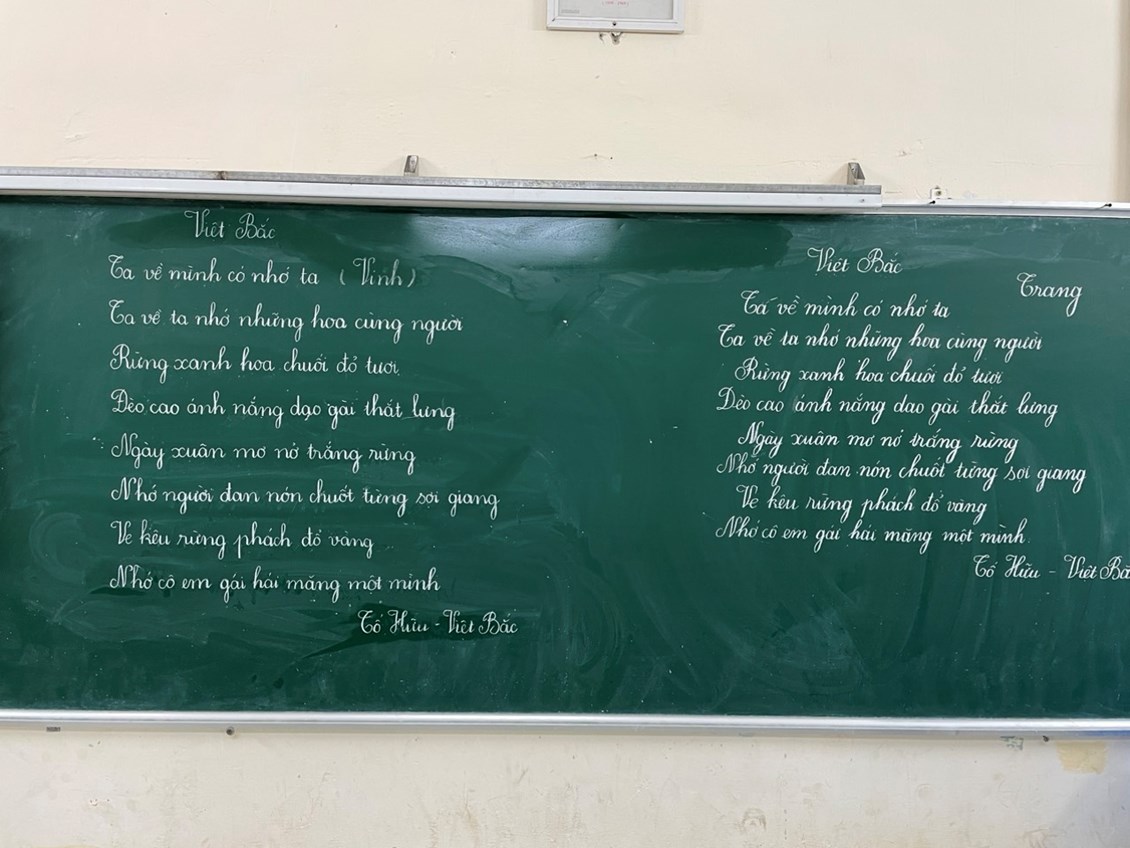 Việt Bắc
Ta về mình có nhớ ta (Vinh)
Ta về ta nhớ những hoa cùng người
Rừng xanh hoa chuối đỏ tươi.
Đèo cao ánh nắng dao gài thắt lưng
Ngày xuân mơ nở trắng rừng
Nhớ người đan nón chuốt từng sợi giang
Ve kêu rừng phách đổ vàng
Nhớ cô em gái hái măng một mình
Tố Hữu - Việt Bắc
Việt Bắc
Trang
Ta về mình có nhớ ta
Ta về ta nhớ những hoa cùng người
Rừng xanh hoa chuối đỏ tươi
Đèo cao ánh nắng dao gài thắt lưng
Ngày xuân mơ nở trắng rừng
Nhớ người đan nón chuốt từng sợi giang
Ve kêu rừng phách đổ vàng
Nhớ cô em gái hái măng một mình
Tố Hữu - Việt Bắ